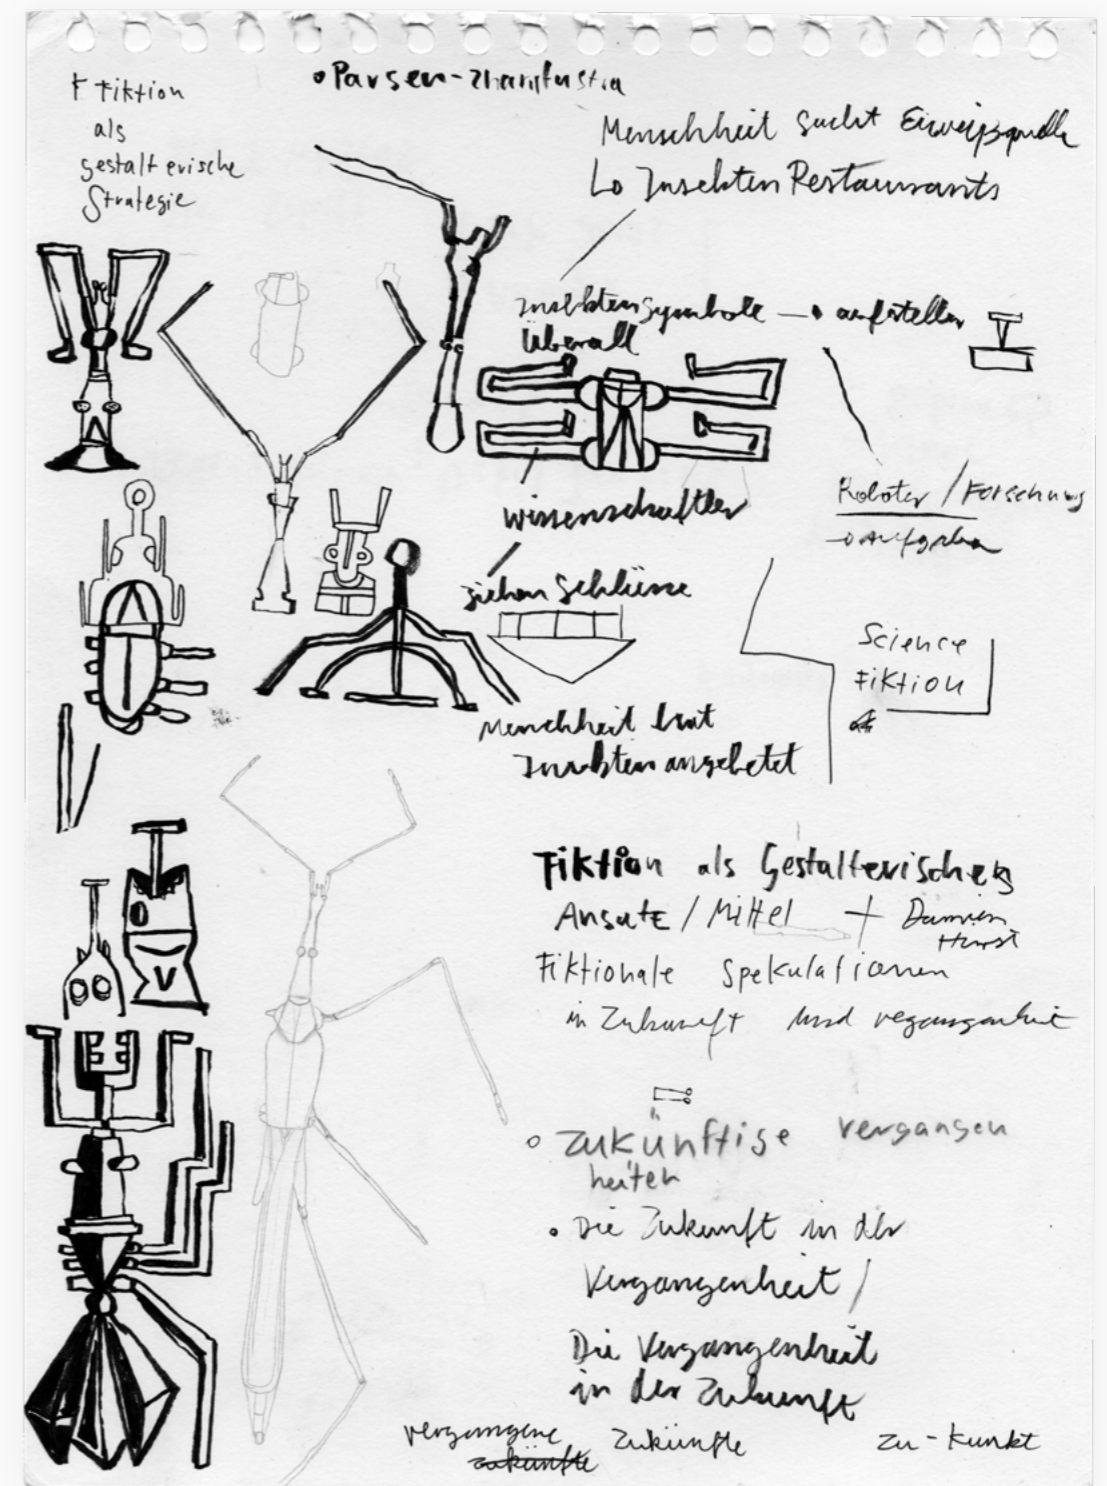 Fiktion
als
gestalterische
Strategie
Parsen-
Menschheit sucht Eiweißquelle
Insekten Restaurants
Insektensymbole → aufstellen
überall
wissenschaftler
ziehen Schlüsse
Roboter / Forschung
→ Aufgaben
Science
Fiktion
Menschheit hat
Insekten angebetet
Fiktion als Gestalterisches
Ansatz / Mittel + Damien
Hirst
Fiktionale Spekulationen
in Zukunft und vegangenheit
zukünftige vergangen
heiten
Die Zukunft in der
Vergangenheit /
Die Vergangenheit
in der Zukunft
vergangene Zukünfte
zukünfte
Zu-Kunkt